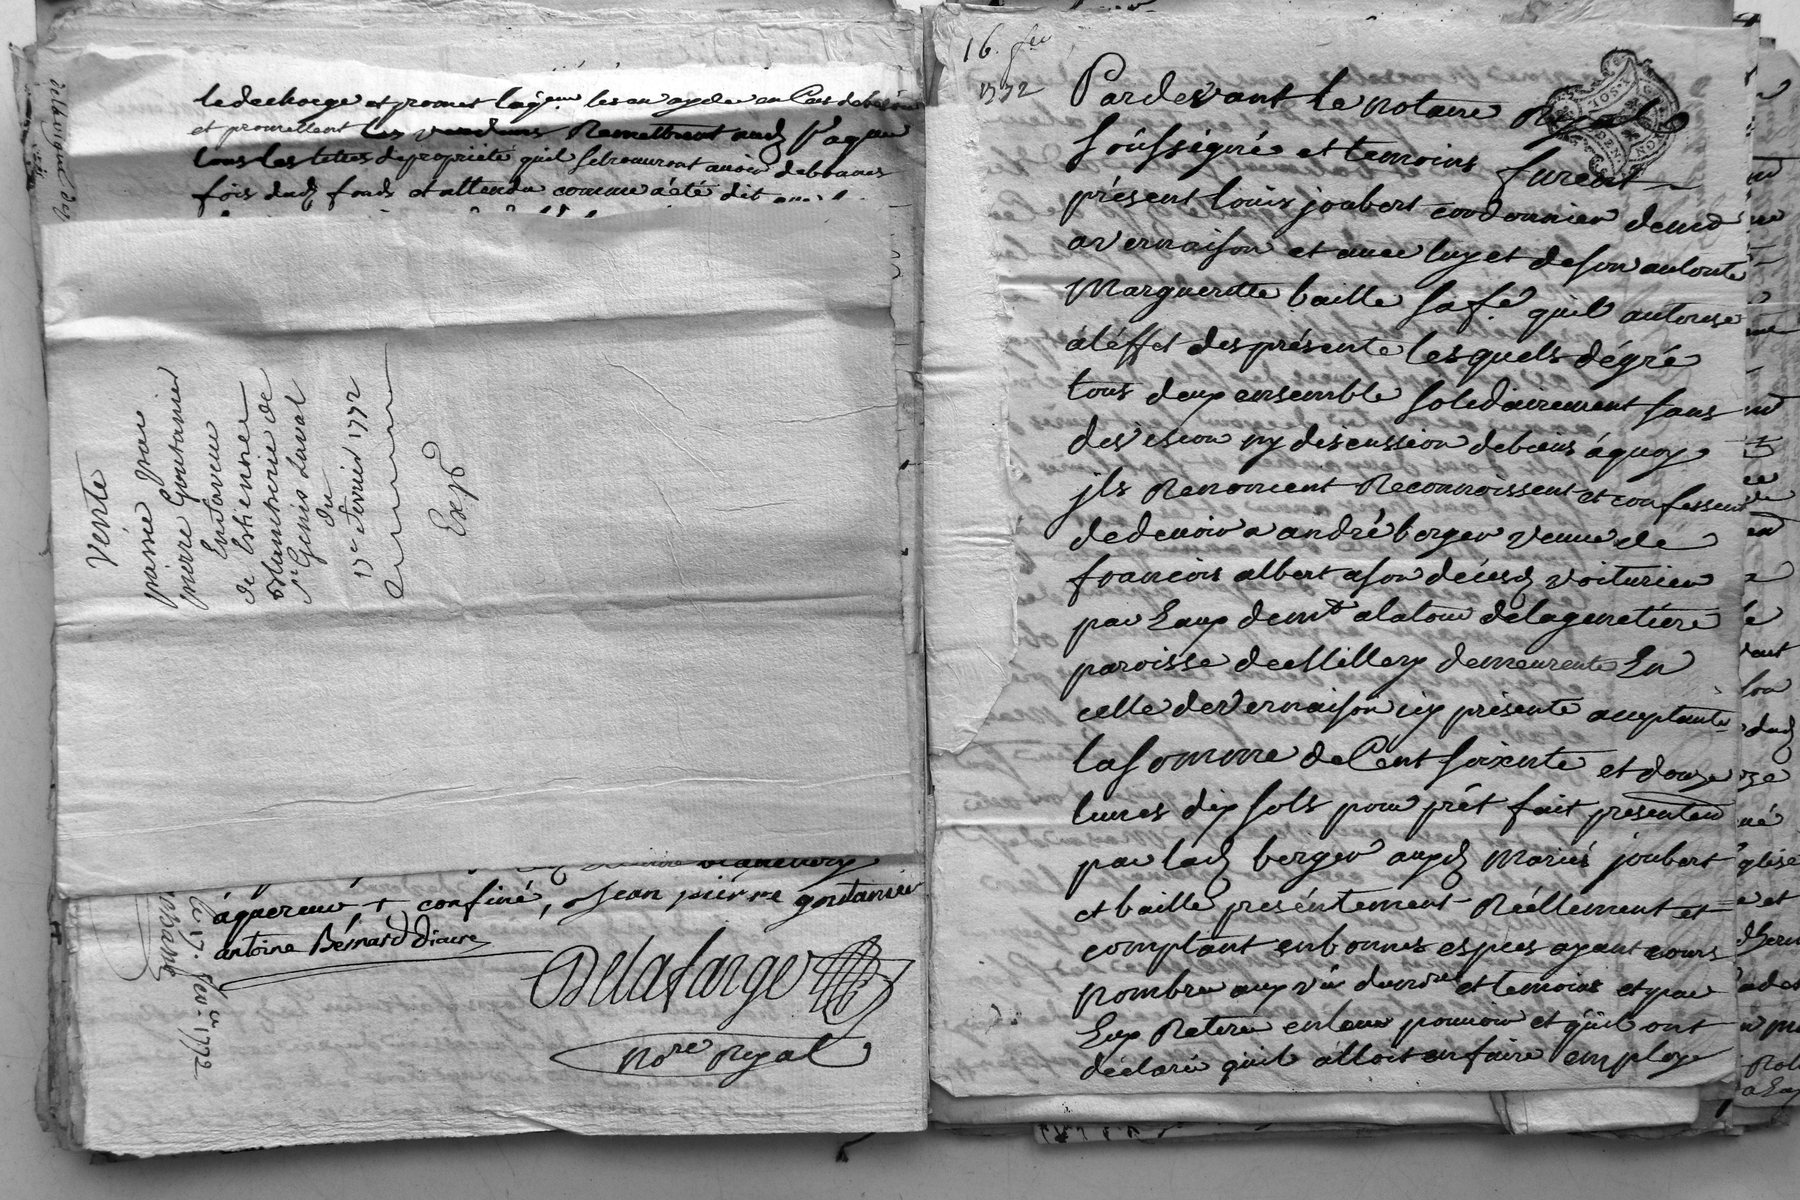 le decharge et promet
et promettent les vendeurs Remettront audt
tous les titres de propriété quil se trouvront avoir
fois dudt fonds et attendu comme a été dit
Vente
passée par
pierre Goutanier
En faveur
de Estienne
Blancherie de
St Genis Laval
du
17e Fevrier 1772
Exp
áquereur + confiné, Jean piérre gontanier
antoine Bérnard Diacre
Delafarge
nore Royal
le 17. fevr. 1772
16. feu
1772
Pardevant le notaire Royal
soússigné et temoins furent
présent louis joubert cordonnier demt
a vernaison et avec luy et de son autorité
Margueritte baille sa fe quil autorise
á léffet des présente lesquels dégré
tous deux ensemble solidairement sans
division ny discussion de biens áquoy
jls Renoncent Reconnoissent et confessent
de devoir a andrée berger veuve de
francois albert a son décesd voiturier
par Eaux demt a la tour de la
paroisse de Millery demeurente En
celle de vernaison icy présente acceptante
la somme de Cent soixente et douze
livres dix sols pour prét fait presentem
par lad berger auxd Mariés joubert
et baille preséntement Réellement et
comptant en bonnes espces ayant cours
nombre aux vûe du nore et temoins et par
Eux Retiré en leur pouvoir et qúil ont
déclaré quil álloit en faire employ